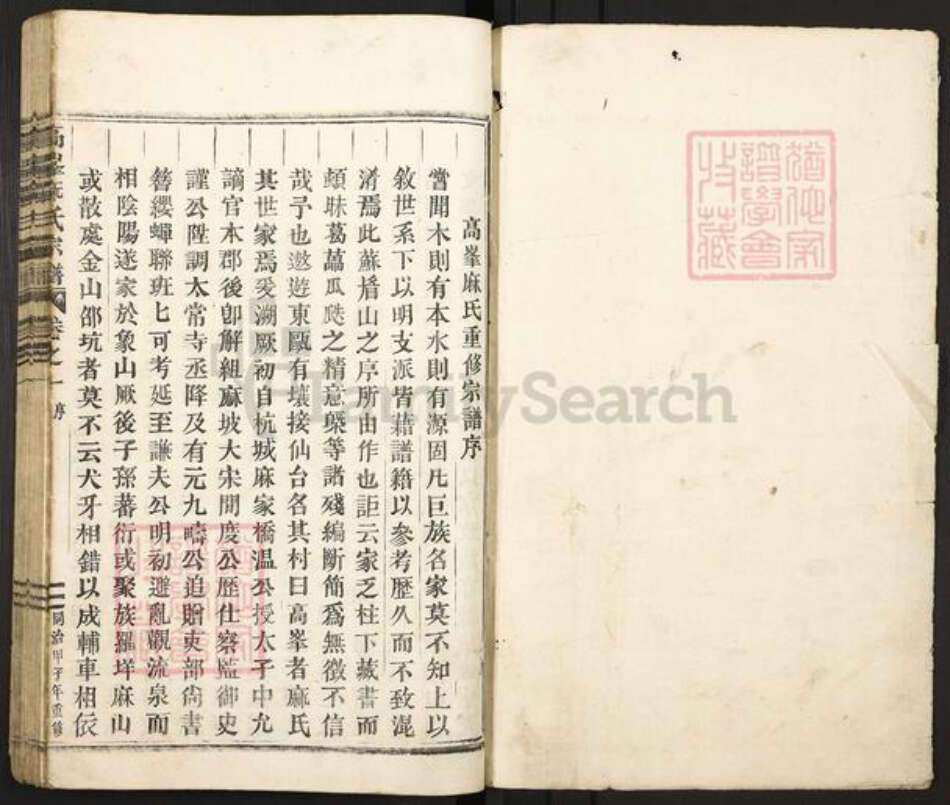 高峯麻氏重修宗譜序
嘗聞木則有本水則有源固凡巨族名家莫不知上以
敘世系下以明支派皆藉譜籍以參考歷久而不致混
淆焉此蘇眉山之序所由作也詎云家乏柱下藏書而
頓昧葛藟瓜瓞之精意槩等諸殘編斷簡爲無徵不信
哉予也遨遊東甌有壤接仙台名其村曰高峯者麻氏
其世家焉爰溯厥初自杭城麻家橋溫公授太子中允
謫官本郡後卽解組麻坡大宋間度公歷仕察監御史
謹公陞調太常寺丞降及有元九疇公追贈吏部尙書
簪纓蟬聯班七可考延至謙夫公明初避亂觀流泉而
相陰陽遂家於象山厥後子孫蕃衍或聚族羅垟麻山
或散處金山邵坑者莫不云犬牙相錯以成輔車相依
高峯麻氏宗譜
卷之一
序
同治甲子年重修
譜學會
收藏
FamilySearch